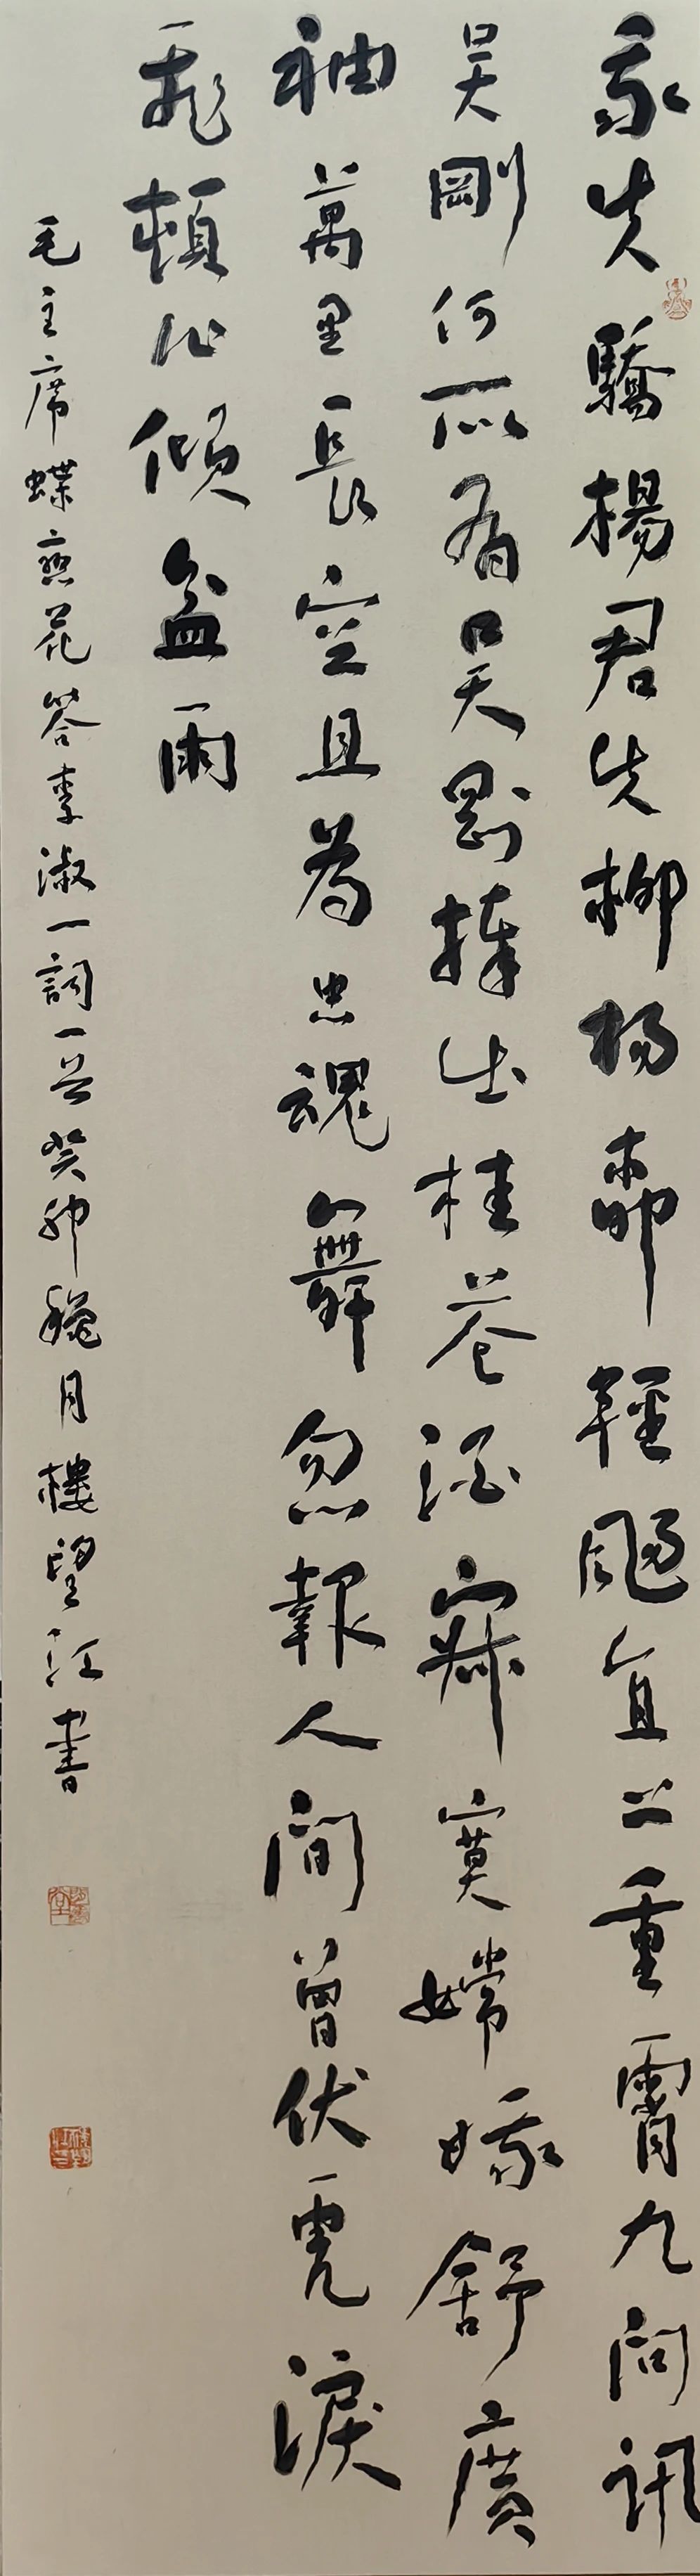 我失驕楊君失柳楊柳輕颺直上重霄九問訊
吳剛何所有吳剛捧出桂花酒寂寞嫦娥舒廣
袖萬里長空且為忠魂舞忽報人間曾伏虎淚
飛頓作傾盆雨
毛主席蝶戀花答李淑一詞一首癸卯穐月樓望江書